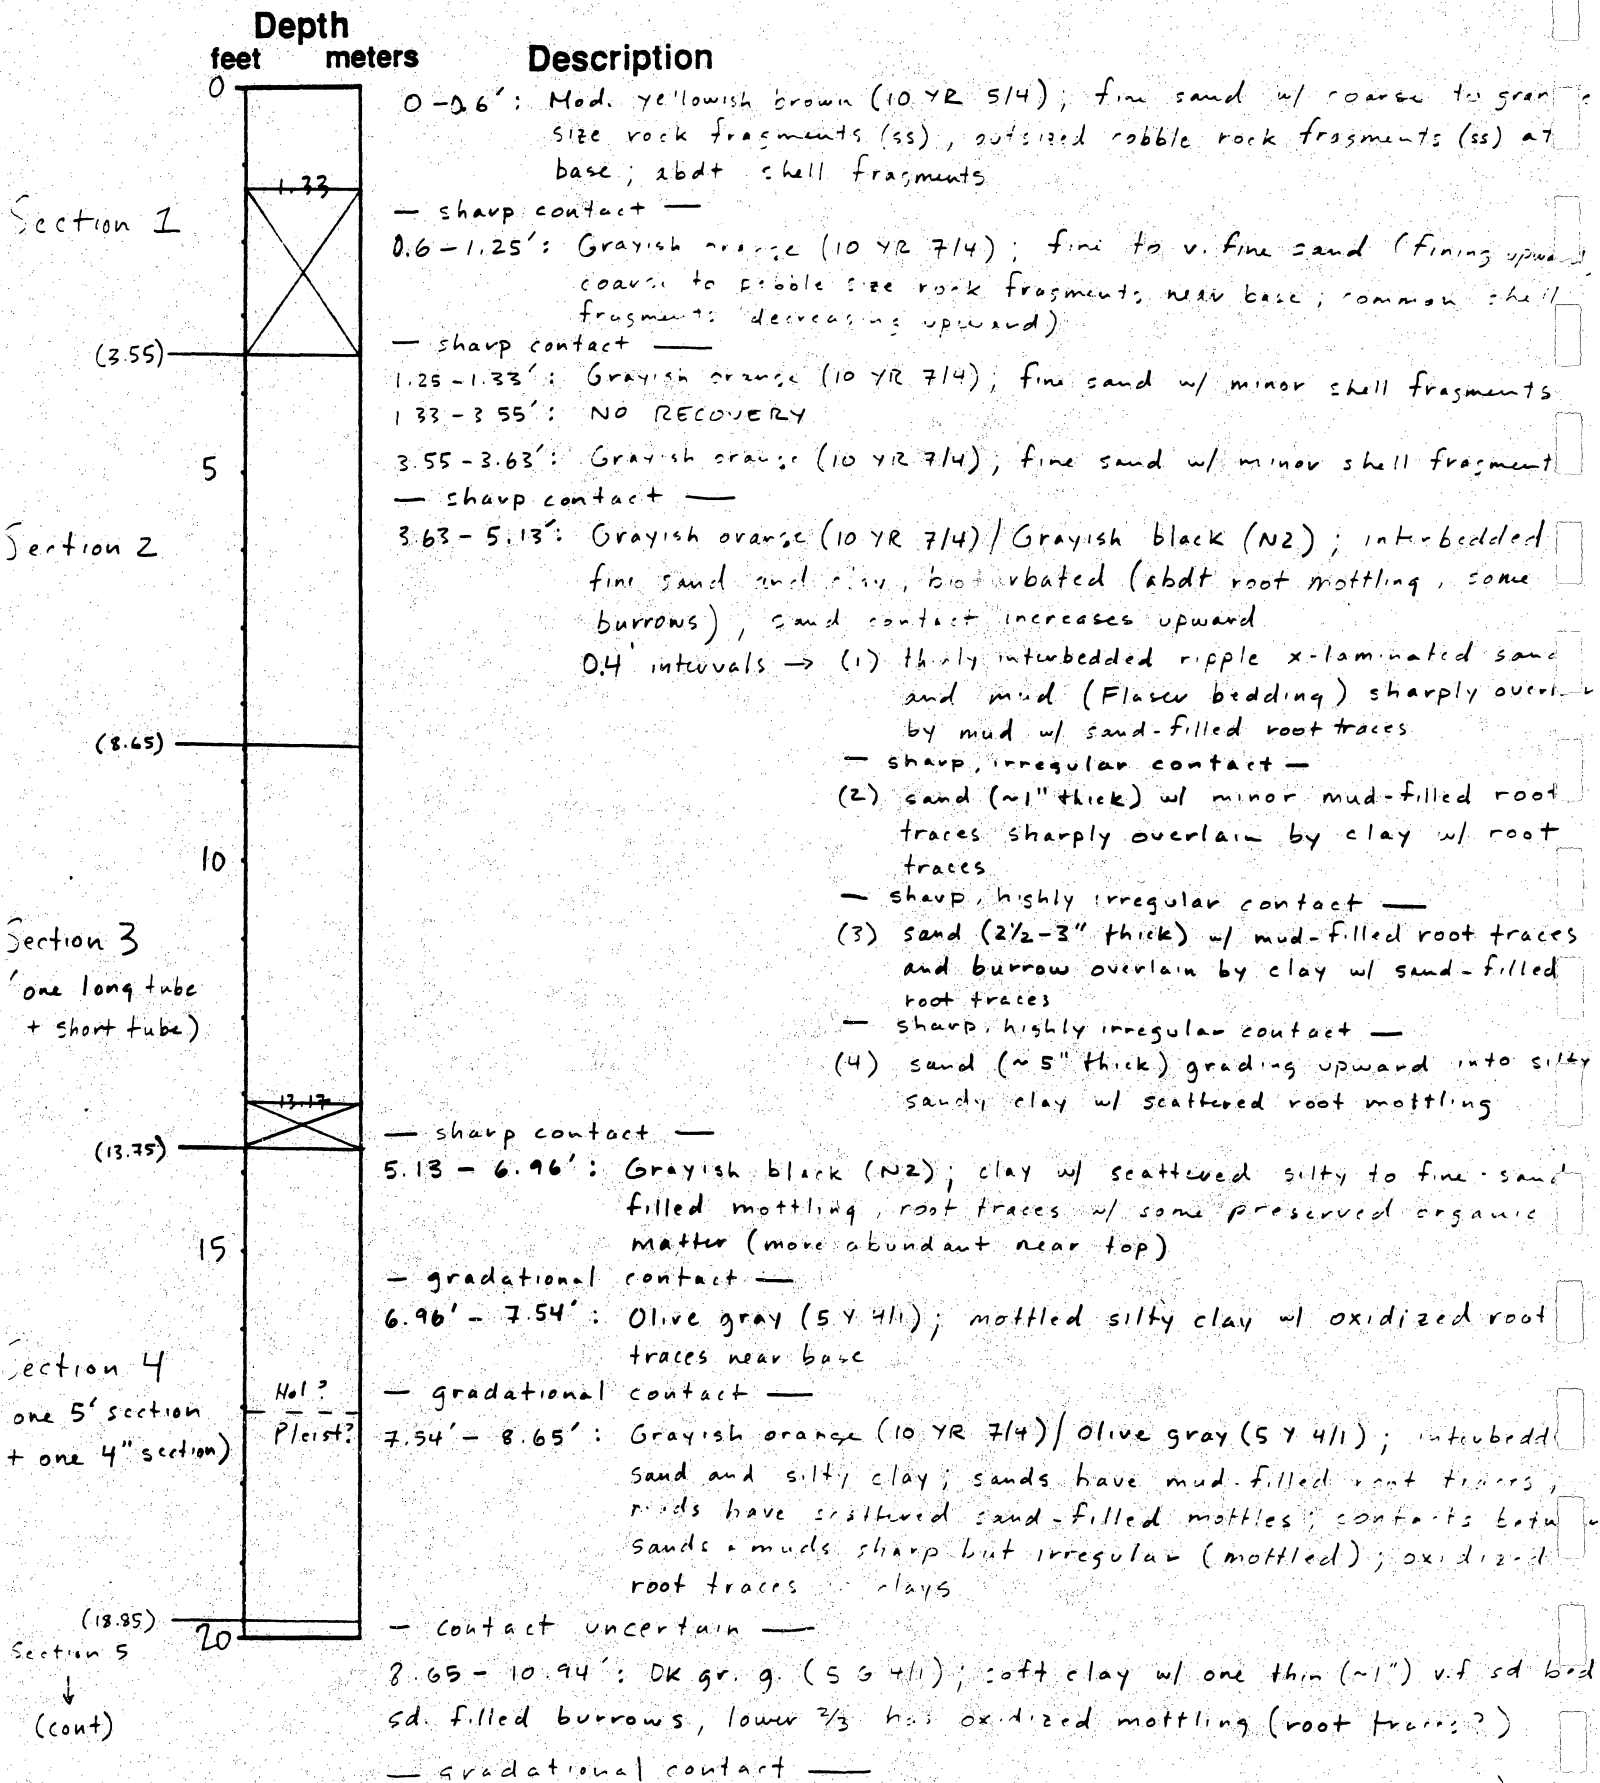 Depth
feet meters Description
0
0-0.6': Mod. yellowish brown (10 YR 5/4); fine sand w/ coarse to
size rock fragments (ss), outsized cobble rock fragments (ss) at
base; abdt shell fragments
1.33
— sharp contact —
Section 1
0.6-1.25': Grayish orange (10 YR 7/4); fine to v. fine sand (fining upward,
coarse to pebble size rock fragments near base; common shell
fragments decreasing upward)
— sharp contact —
(3.55)
1.25-1.33': Grayish orange (10 YR 7/4); fine sand w/ minor shell fragments
1.33-3.55': NO RECOVERY
3.55-3.63': Grayish orange (10 YR 7/4); fine sand w/ minor shell fragment
5
— sharp contact —
Section 2
3.63-5.13': Grayish orange (10 YR 7/4)/Grayish black (N2); interbedded
fine sand and clay, bioturbated (abdt root mottling, some
burrows), sand contact increases upward
0.4' intervals → (1) thinly interbedded ripple x-laminated sand
and mud (Flaser bedding) sharply
by mud w/ sand-filled root traces
(8.65)
— sharp, irregular contact —
(2) sand (~1" thick) w/ minor mud-filled root
traces sharply overlain by clay w/ root
traces
10
— sharp, highly irregular contact —
Section 3
(3) sand (2½-3" thick) w/ mud-filled root traces
and burrow overlain by clay w/ sand-filled
root traces
'one long tube
+ short tube)
— sharp, highly irregular contact —
(4) sand (~5" thick) grading upward into silty
sandy clay w/ scattered root mottling
13.17
— sharp contact —
(13.75)
5.13-6.96': Grayish black (N2); clay w/ scattered silty to fine-sand
filled mottling, root traces w/ some preserved organic
matter (more abundant near top)
15
— gradational contact —
6.96'-7.54': Olive gray (5 Y 4/1); mottled silty clay w/ oxidized root
traces near base
Section 4
one 5' section
+ one 4" section)
Hol?
Pleist?
— gradational contact —
7.54'-8.65': Grayish orange (10 YR 7/4)/Olive gray (5 Y 4/1); interbedd
sand and silty clay; sands have mud-filled root traces,
muds have scattered sand-filled mottles; contacts
sands & muds sharp but irregular (mottled); oxidized
root traces clays
(18.85)
— contact uncertain —
20
Section 5
↓
(cont)
8.65-10.94': DK gr. g. (5 G 4/1); soft clay w/ one thin (~1") v.f sd bed
sd. filled burrows, lower 2/3 has oxidized mottling (root traces?)
— gradational contact —